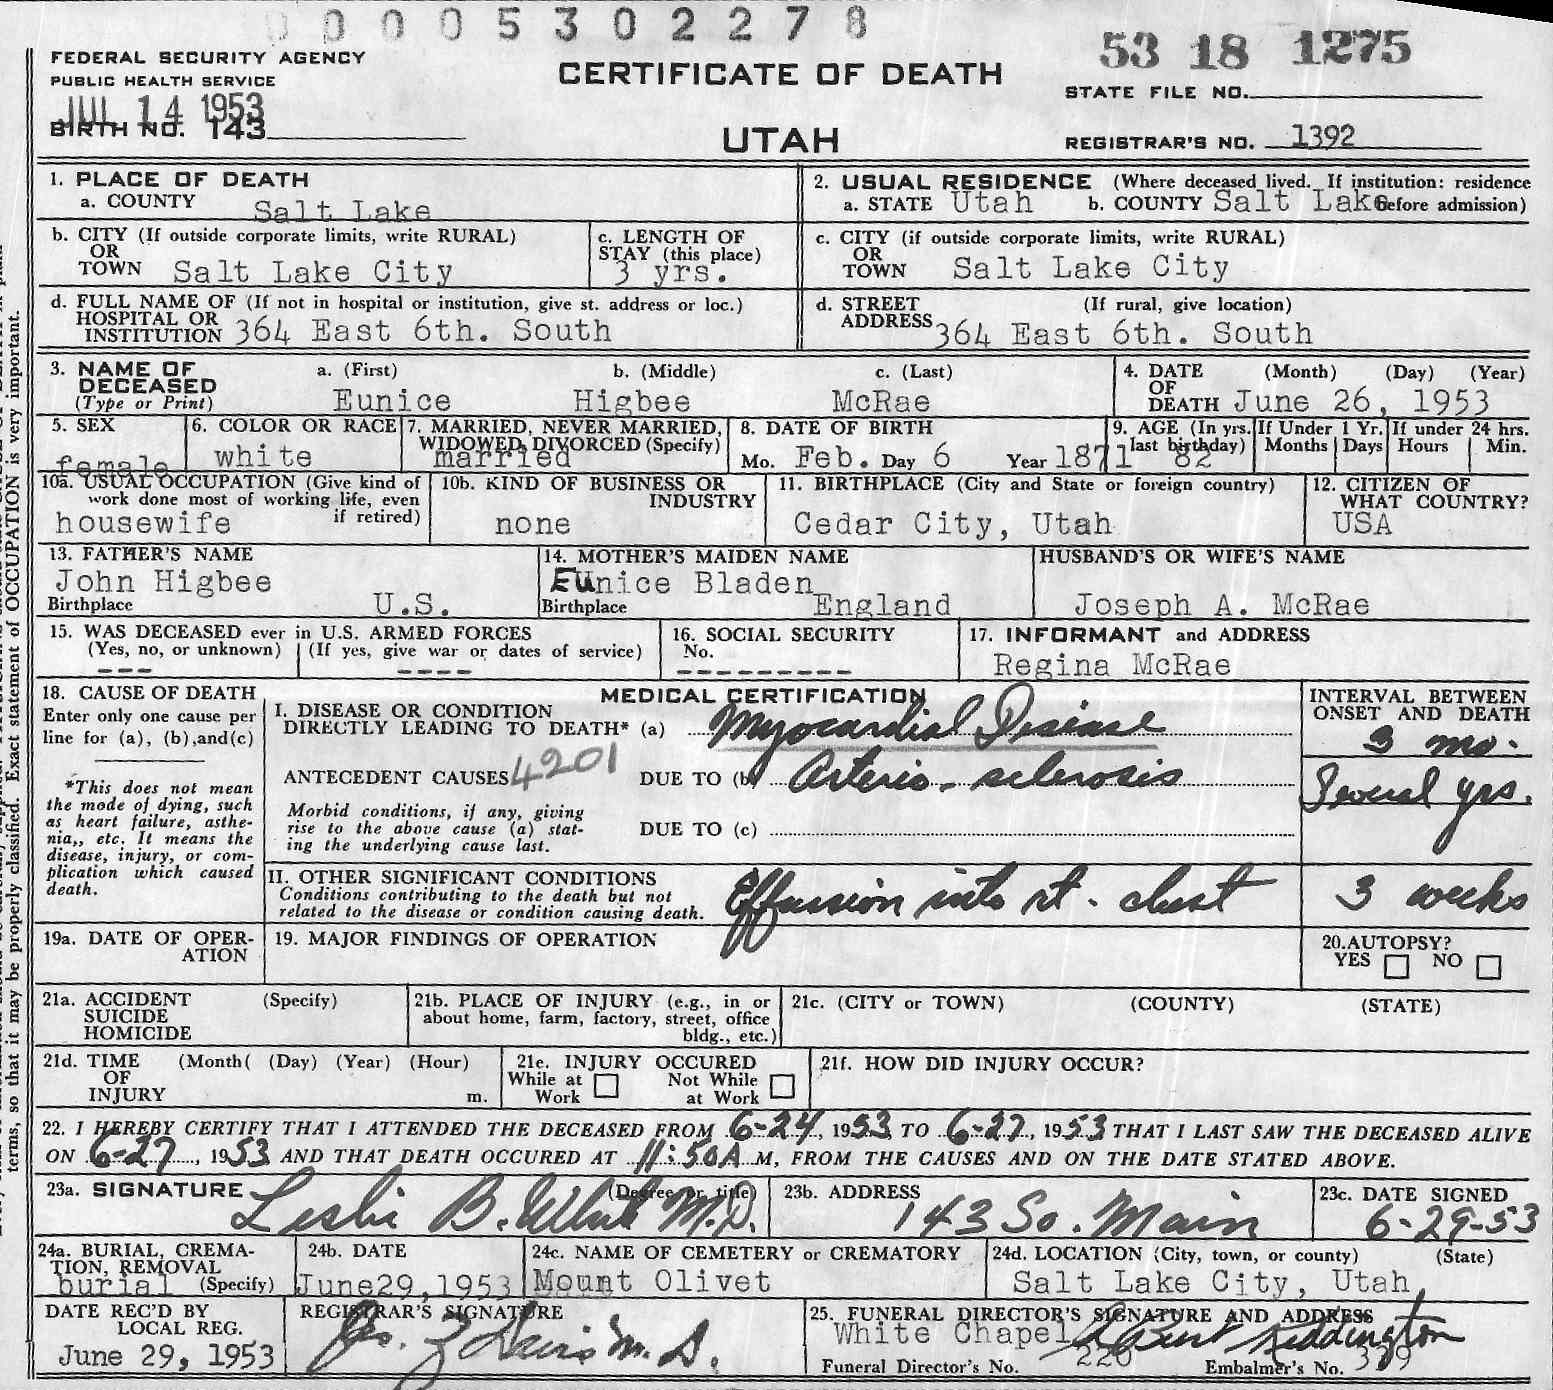 0 0 0 0 5 3 0 2 2 7 8
53 18 1275
FEDERAL SECURITY AGENCY
PUBLIC HEALTH SERVICE
CERTIFICATE OF DEATH
STATE FILE NO.
JUL 14 1953
BIRTH NO. 143
UTAH
REGISTRAR'S NO. 1392
1. PLACE OF DEATH
a. COUNTY Salt Lake
2. USUAL RESIDENCE (Where deceased lived. If institution: residence
a. STATE Utah b. COUNTY Salt Lake before admission)
b. CITY (If outside corporate limits, write RURAL)
OR
TOWN Salt Lake City
c. LENGTH OF
STAY (this place)
3 yrs.
c. CITY (if outside corporate limits, write RURAL)
OR
TOWN Salt Lake City
d. FULL NAME OF (If not in hospital or institution, give st. address or loc.)
HOSPITAL OR
INSTITUTION 364 East 6th. South
d. STREET (If rural, give location)
ADDRESS 364 East 6th. South
3. NAME OF a. (First) b. (Middle) c. (Last)
DECEASED
(Type or Print) Eunice Higbee McRae
4. DATE (Month) (Day) (Year)
OF
DEATH June 26, 1953
5. SEX
female
6. COLOR OR RACE
white
7. MARRIED, NEVER MARRIED,
WIDOWED, DIVORCED (Specify)
married
8. DATE OF BIRTH
Mo. Feb. Day 6 Year 1871
9. AGE (In yrs.
last birthday)
82
If Under 1 Yr.
Months Days
If under 24 hrs.
Hours Min.
10a. USUAL OCCUPATION (Give kind of
work done most of working life, even
if retired)
housewife
10b. KIND OF BUSINESS OR
INDUSTRY
none
11. BIRTHPLACE (City and State or foreign country)
Cedar City, Utah
12. CITIZEN OF
WHAT COUNTRY?
USA
13. FATHER'S NAME
John Higbee
Birthplace U.S.
14. MOTHER'S MAIDEN NAME
EUnice Bladen
Birthplace England
HUSBAND'S OR WIFE'S NAME
Joseph A. McRae
15. WAS DECEASED ever in U.S. ARMED FORCES
(Yes, no, or unknown) (If yes, give war or dates of service)
--- ----
16. SOCIAL SECURITY
No.
---------
17. INFORMANT and ADDRESS
Regina McRae
18. CAUSE OF DEATH
Enter only one cause per
line for (a), (b),and(c)
*This does not mean
the mode of dying, such
as heart failure, asthe-
nia,, etc. It means the
disease, injury, or com-
plication which caused
death.
MEDICAL CERTIFICATION
I. DISEASE OR CONDITION
DIRECTLY LEADING TO DEATH* (a) Myocardial Disease
ANTECEDENT CAUSES 4201 DUE TO (b) Arterio-sclerosis
Morbid conditions, if any, giving
rise to the above cause (a) stat-
ing the underlying cause last.
DUE TO (c)
II. OTHER SIGNIFICANT CONDITIONS
Conditions contributing to the death but not
related to the disease or condition causing death.
Effussion into rt. chest
INTERVAL BETWEEN
ONSET AND DEATH
3 mo.
Several yrs.
3 weeks
19a. DATE OF OPER-
ATION
19. MAJOR FINDINGS OF OPERATION
20.AUTOPSY?
YES NO
21a. ACCIDENT (Specify)
SUICIDE
HOMICIDE
21b. PLACE OF INJURY (e.g., in or
about home, farm, factory, street, office
bldg., etc.)
21c. (CITY or TOWN) (COUNTY) (STATE)
21d. TIME (Month( (Day) (Year) (Hour)
OF
INJURY m.
21e. INJURY OCCURED
While at Work Not While at Work
21f. HOW DID INJURY OCCUR?
22. I HEREBY CERTIFY THAT I ATTENDED THE DECEASED FROM 6-24, 1953 TO 6-27, 1953 THAT I LAST SAW THE DECEASED ALIVE
ON 6-27, 1953 AND THAT DEATH OCCURED AT 11:50A M, FROM THE CAUSES AND ON THE DATE STATED ABOVE.
23a. SIGNATURE (Degree or title)
Leslie B. White M.D.
23b. ADDRESS
143 So. Main
23c. DATE SIGNED
6-29-53
24a. BURIAL, CREMA-
TION, REMOVAL
burial (Specify)
24b. DATE
June29,1953
24c. NAME OF CEMETERY or CREMATORY
Mount Olivet
24d. LOCATION (City, town, or county) (State)
Salt Lake City, Utah,
DATE REC'D BY
LOCAL REG.
June 29, 1953
REGISTRAR'S SIGNATURE
M.D.
25. FUNERAL DIRECTOR'S SIGNATURE AND ADDRESS
White Chapel
Funeral Director's No. 220 Embalmer's No.
terms, so that it may be properly classified. Exact statement of OCCUPATION is very important.